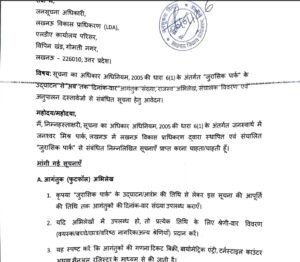 जनसूचना अधिकारी,
लखनऊ विकास प्राधिकरण (LDA),
एलडीए कार्यालय परिसर,
विपिन खंड, गोमती नगर,
लखनऊ - 226010, उत्तर प्रदेश।
विषय: सूचना का अधिकार अधिनियम, 2005 की धारा 6(1) के अंतर्गत "जुरासिक पार्क" के
उद्घाटन से अब तक दिनांक-वार आगंतुक संख्या, राजस्व अभिलेख, संचालन विवरण एवं
अनुपालन दस्तावेजों से संबंधित सूचना हेतु आवेदन।
महोदय/महोदया,
मैं, निम्नहस्ताक्षरी, सूचना का अधिकार अधिनियम, 2005 की धारा 6(1) के अंतर्गत जनस्वार्थ में
जनेश्वर मिश्र पार्क, लखनऊ में लखनऊ विकास प्राधिकरण द्वारा स्थापित एवं संचालित
"जुरासिक पार्क" से संबंधित निम्नलिखित सूचनाएं प्राप्त करना चाहता/चाहती हूँ।
मांगी गई सूचनाएँ
A. आगंतुक (फुटफॉल) अभिलेख
1. कृपया "जुरासिक पार्क" के उद्घाटन/आरंभ की तिथि से लेकर इस सूचना की आपूर्ति
की तिथि तक दिनांक-वार आगंतुकों की कुल संख्या उपलब्ध कराएं।
2. यदि अभिलेखों में उपलब्ध हो, तो प्रत्येक तिथि के लिए श्रेणी-वार विवरण
(वयस्क/बच्चे/छात्र/वरिष्ठ नागरिक/अन्य श्रेणियाँ) प्रदान करें।
3. यह स्पष्ट करें कि आगंतुकों की गणना टिकट बिक्री, बायोमेट्रिक एंट्री, टर्नस्टाइल काउंटर
अथवा मैनुअल रजिस्टर के माध्यम से की जाती है।